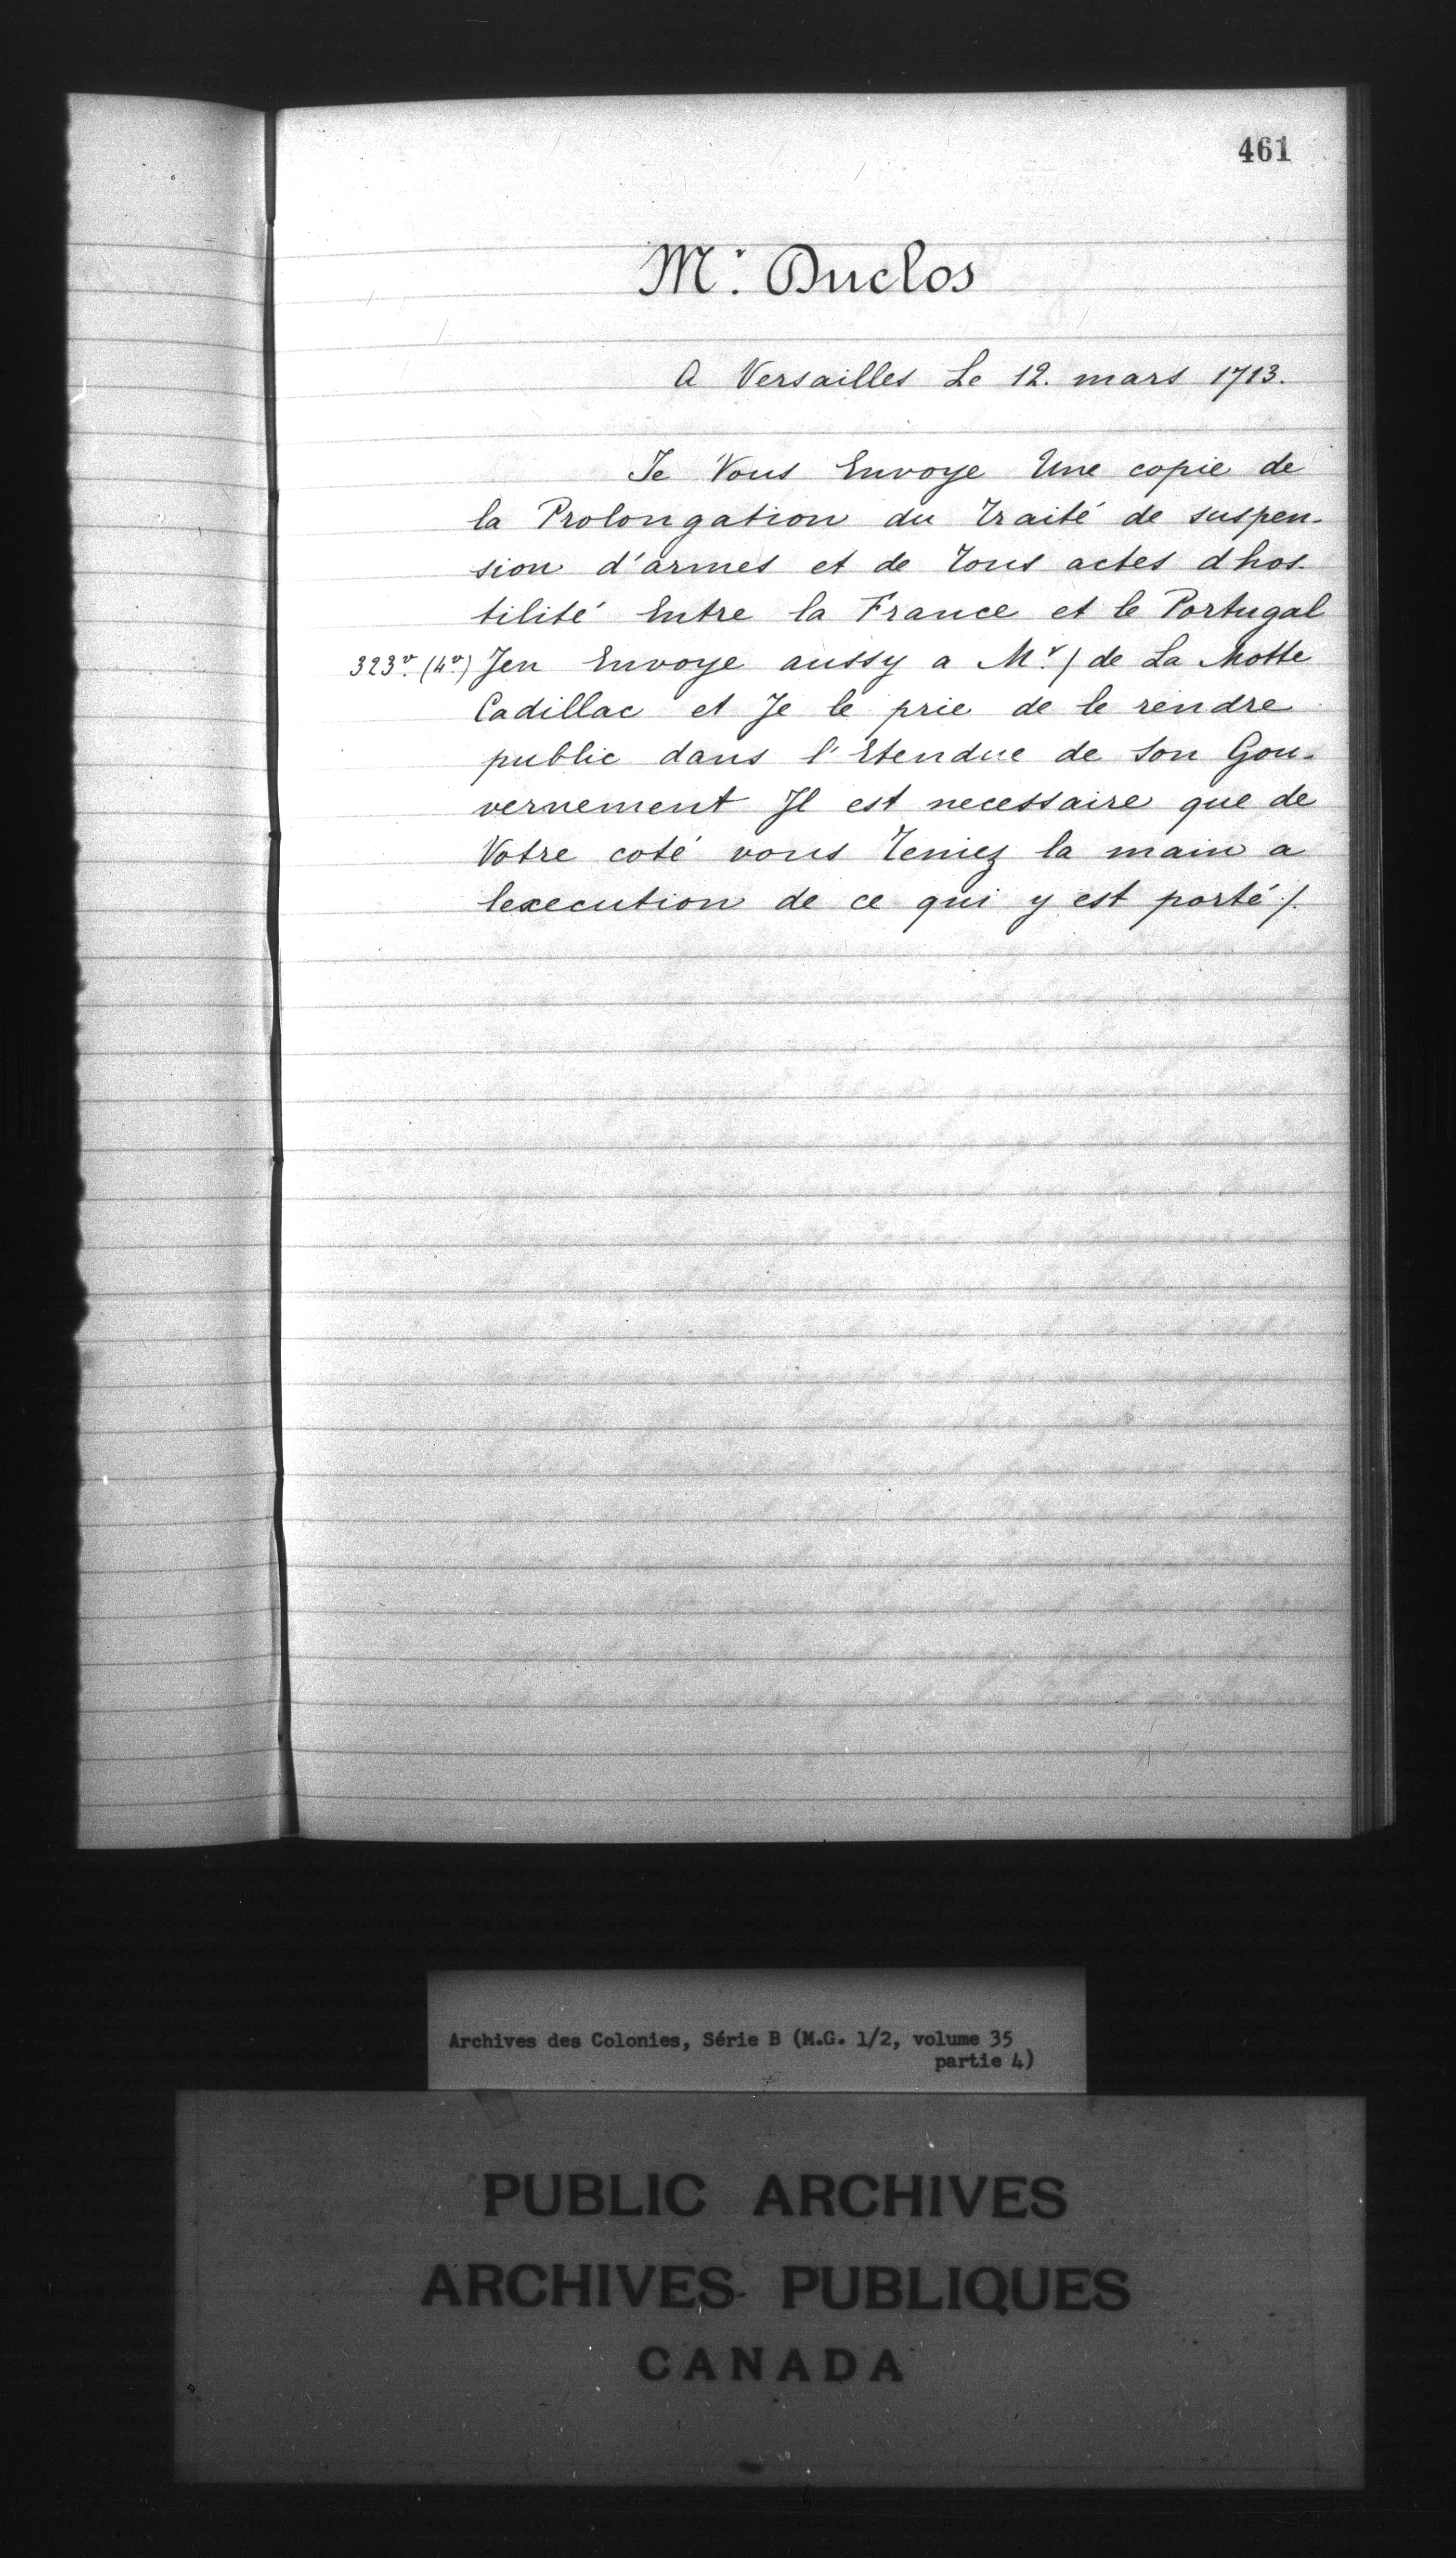 461
Mr. Duclos
A Versailles Le 12. mars 1713.
Je Vous Envoye Une copie de
la Prolongation du Traité de suspen-
sion d'armes et de Tous actes dhos-
tilité Entre la France et le Portugal
323v. (4v) Jen Envoye aussy a Mr./ de La Motte
Cadillac et Je le prie de le rendre
public dans l'Etendue de son Gou-
vernement Il est necessaire que de
Votre coté vous Teniez la main a
lexecution de ce qui y est porté/.
Archives des Colonies, Série B (M.G. 1/2, volume 35
partie 4)
PUBLIC ARCHIVES
ARCHIVES PUBLIQUES
CANADA